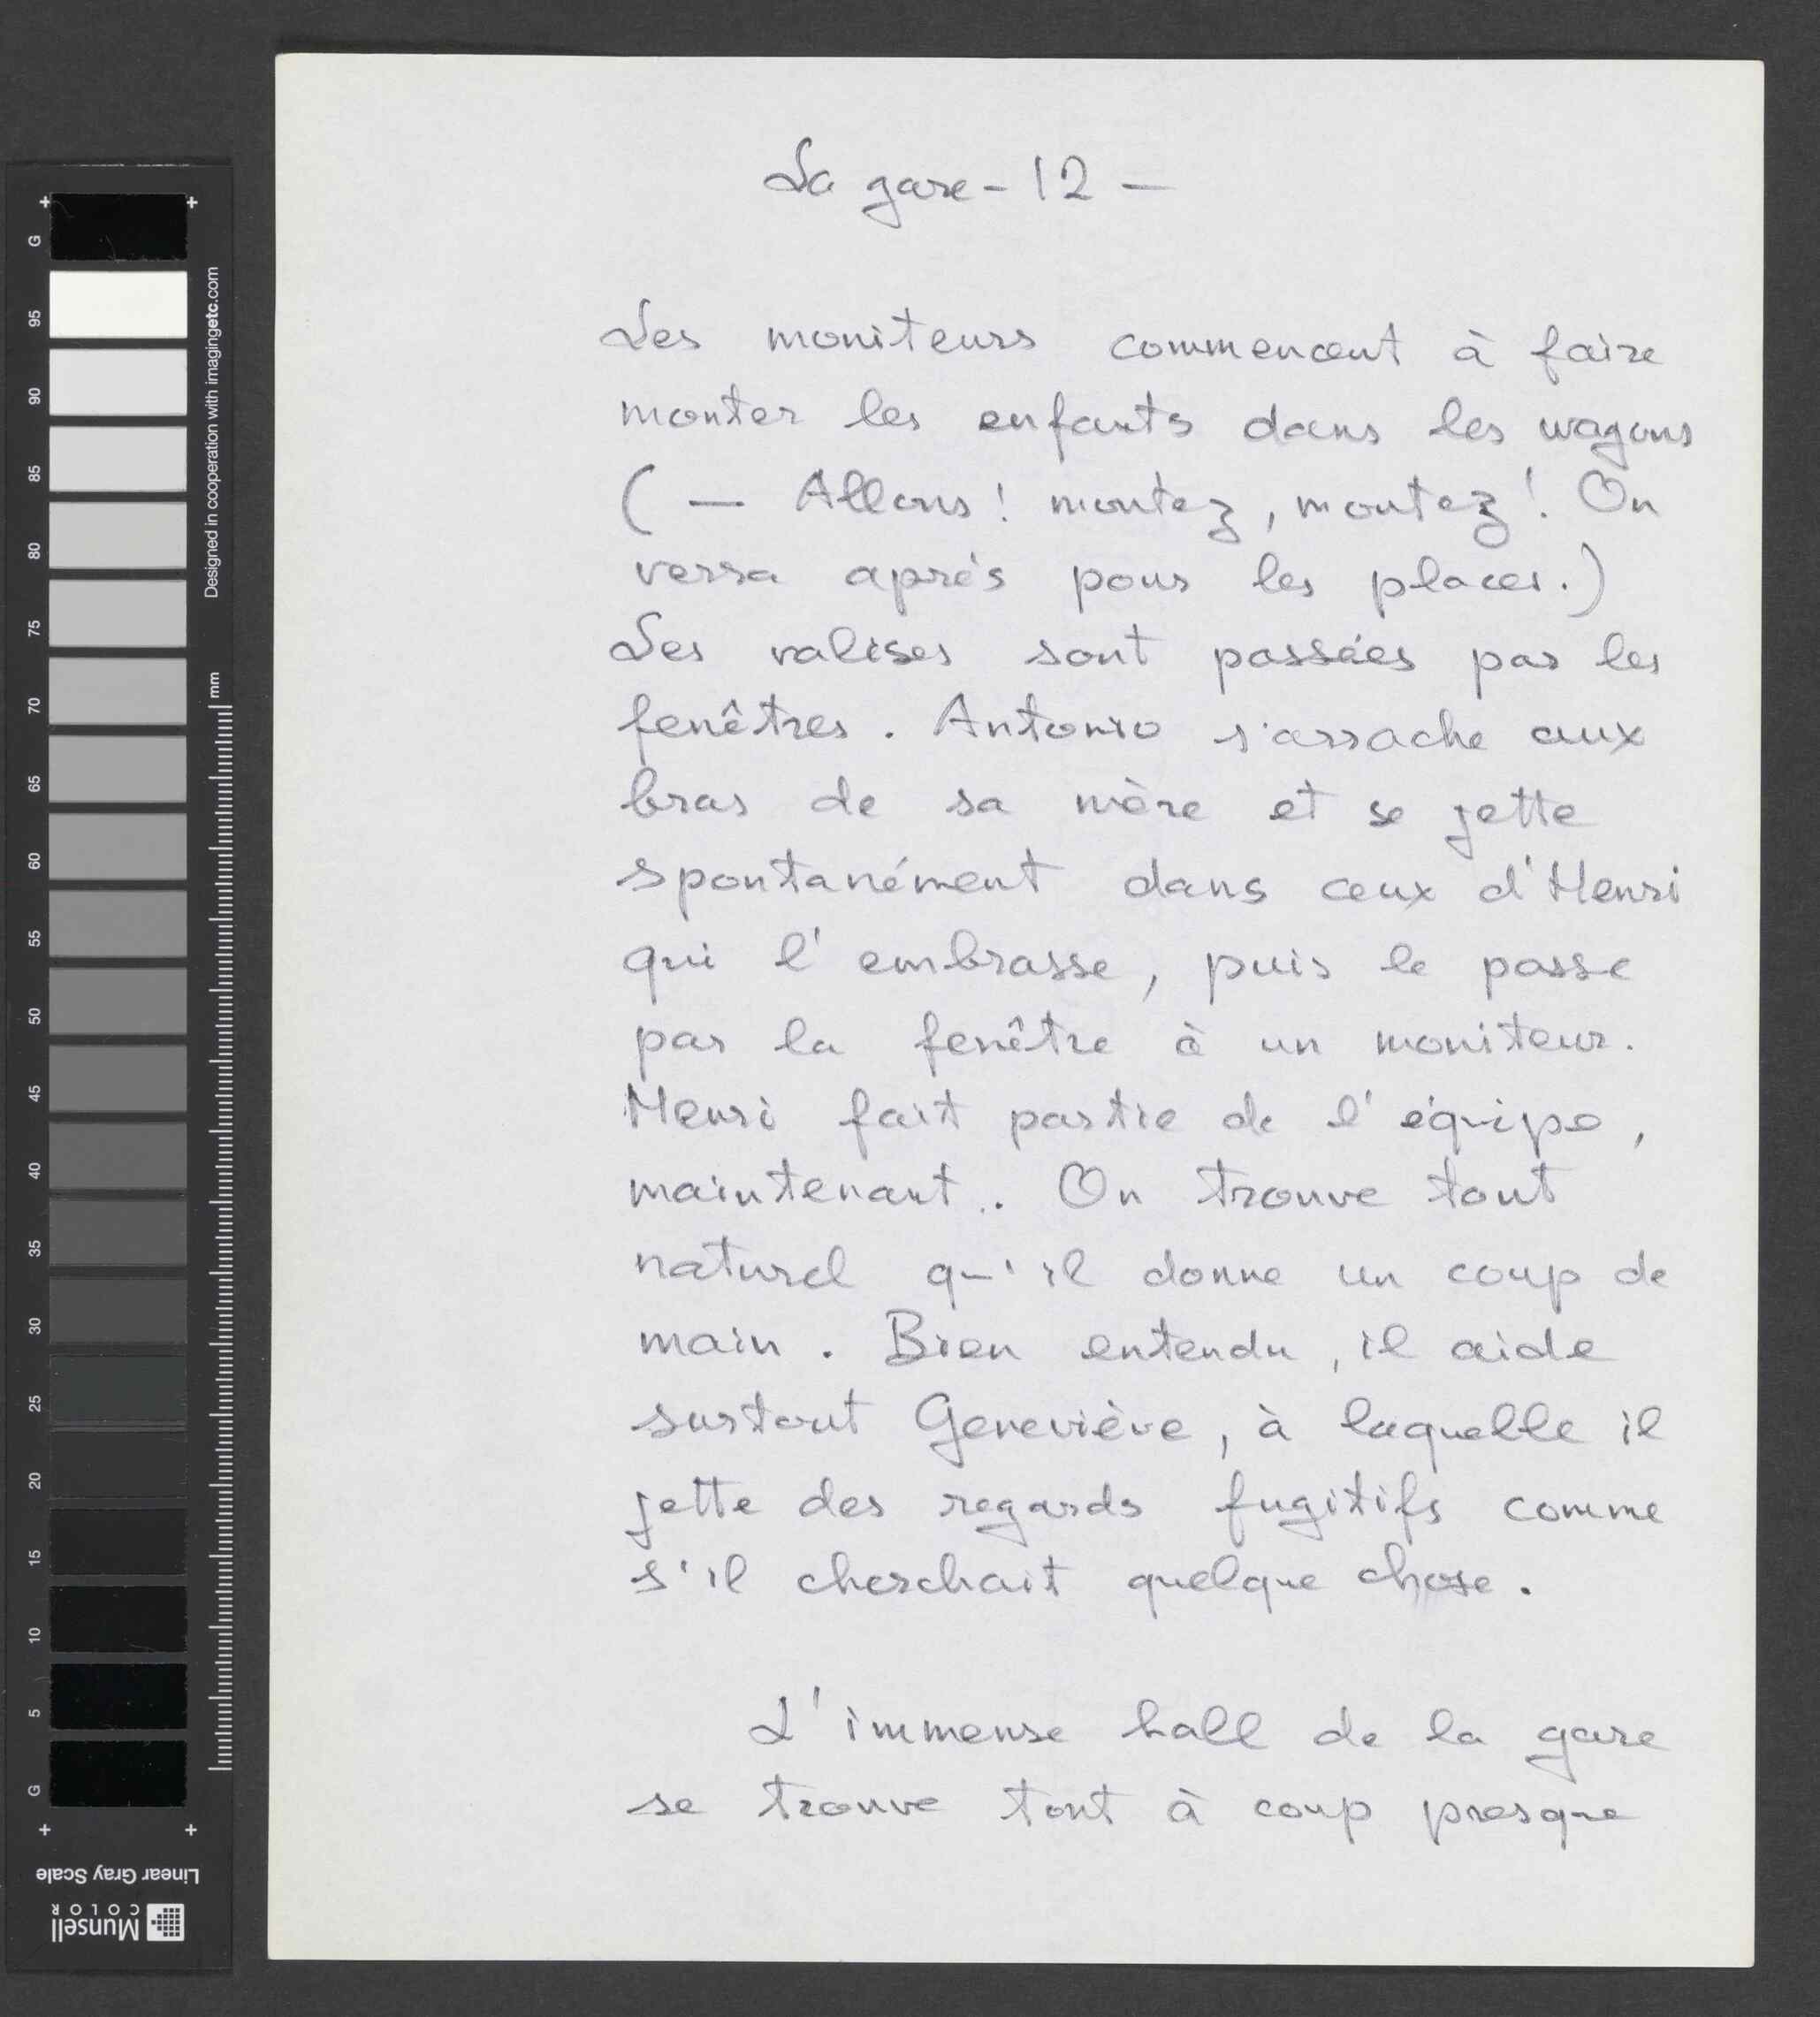 La gare - 12 -
Les moniteurs commencent à faire
monter les enfants dans les wagons
( — Allons ! montez, montez ! On
verra après pour les places.)
Les valises sont passées par les
fenêtres. Antonio s'arrache aux
bras de sa mère et se jette
spontanément dans ceux d'Henri
qui l'embrasse, puis le passe
par la fenêtre à un moniteur.
Henri fait partie de l'équipe,
maintenant.. On trouve tout
naturel qu'il donne un coup de
main. Bien entendu, il aide
surtout Geneviève, à laquelle il
jette des regards fugitifs comme
s'il cherchait quelque chose.
L'immense hall de la gare
se trouve tout à coup presque
G
95
90
85
80
75
70
65
60
55
50
45
40
35
30
25
20
15
10
5
G
Designed in cooperation with imagingetc.com
mm
Linear Gray Scale
Munsell
COLOR